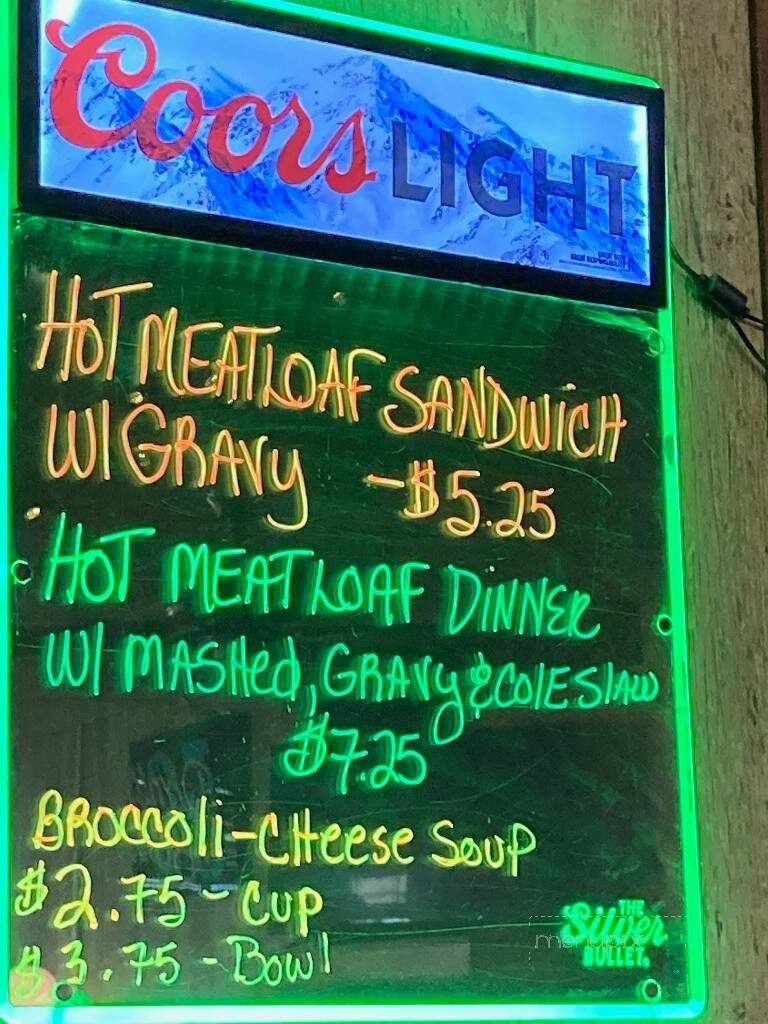 Coors LIGHT
HOT MEATLOAF SANDWICH
W/GRAVY -$5.25
HOT MEATLOAF DINNER
W/ MASHed, GRAVY & COlESlAW
$7.25
BROCCOli-CHeese Soup
$2.75 - Cup
$3.75 - Bowl
THE
Silver
BULLET.